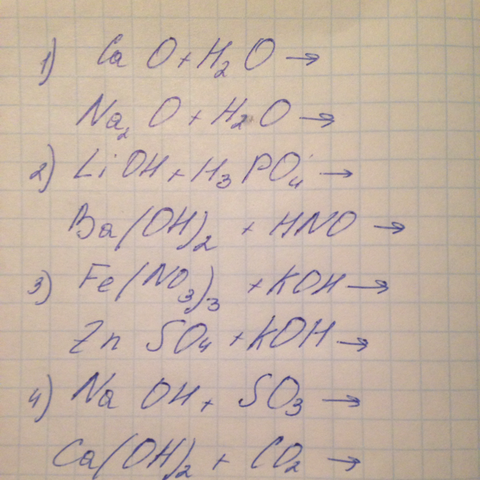 1) CaO + H₂O →
Na₂O + H₂O →
2) LiOH + H₃PO₄ →
Ba(OH)₂ + HNO →
3) Fe(NO₃)₃ + KOH →
ZnSO₄ + KOH →
4) NaOH + SO₃ →
Ca(OH)₂ + CO₂ →